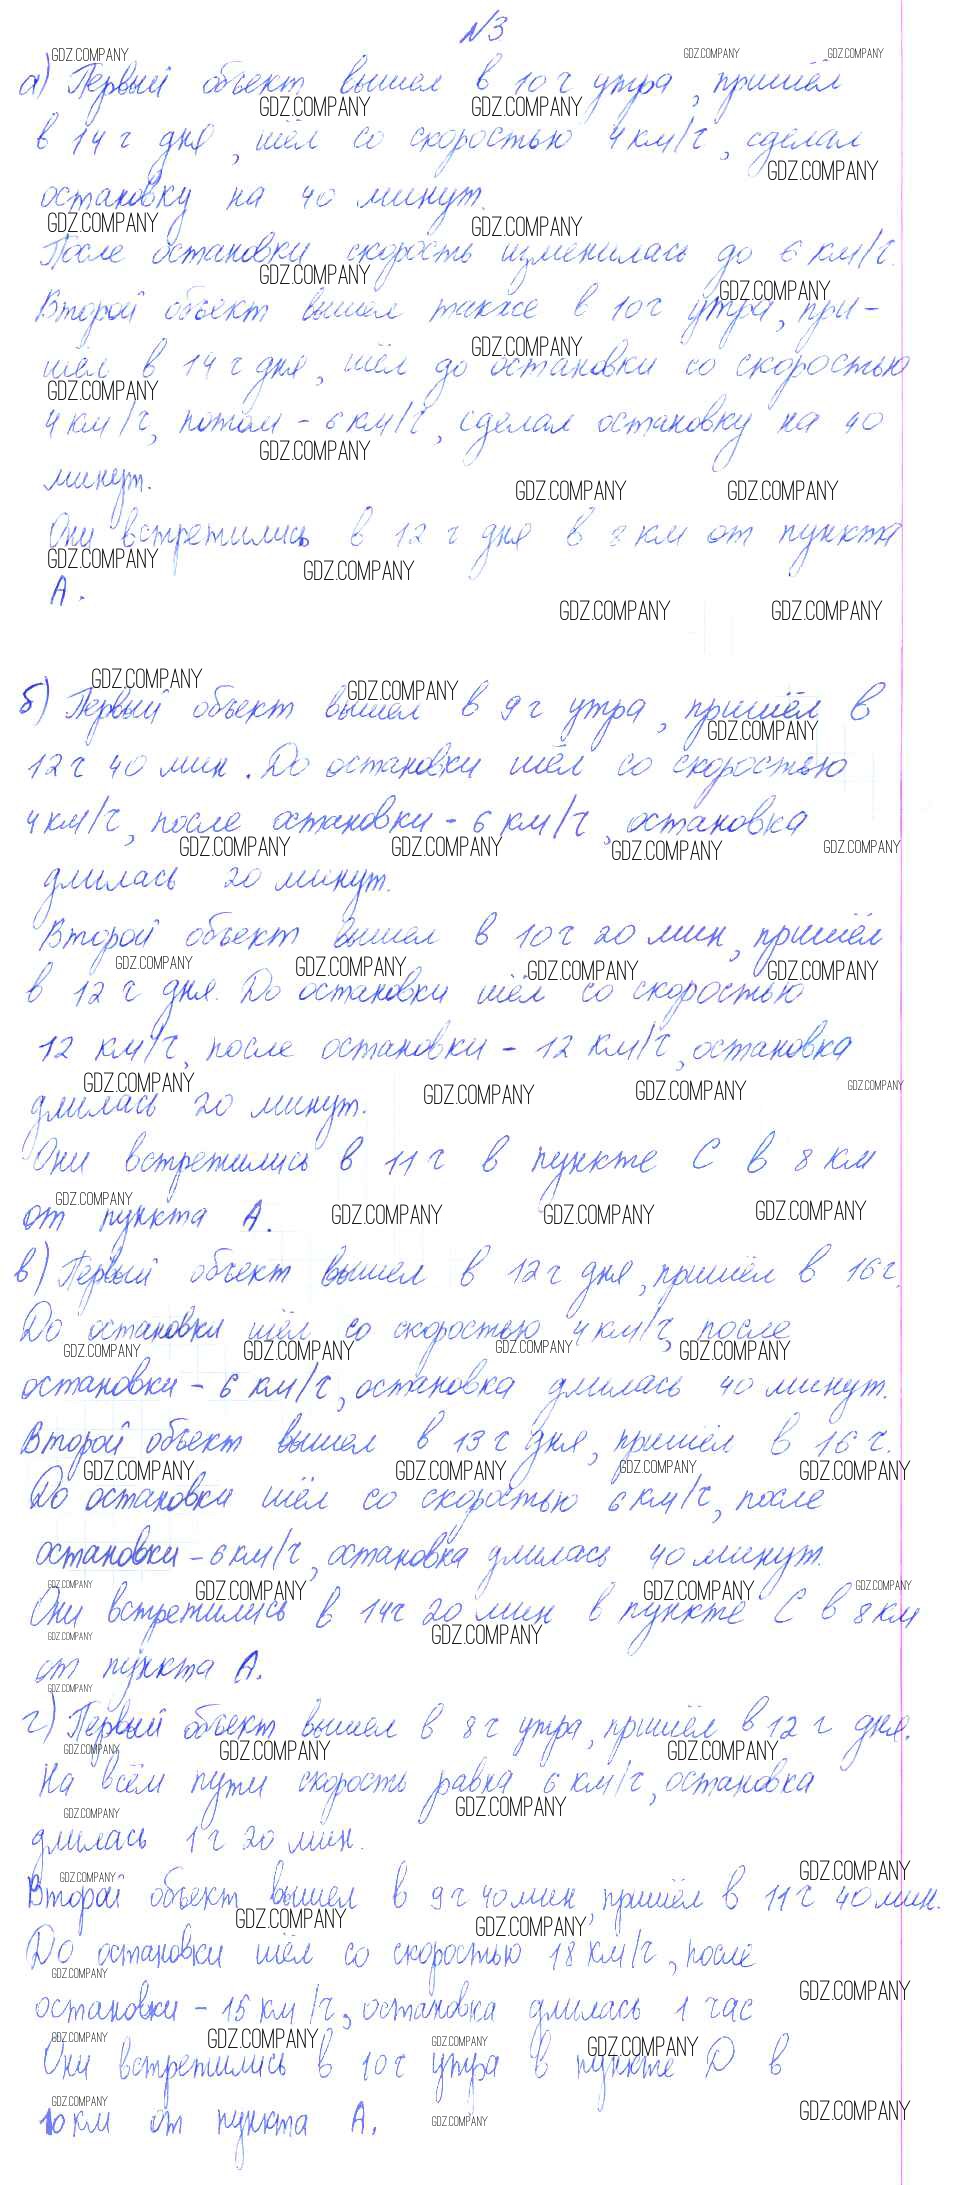 №3
а) Первый объект вышел в 10 ч утра, пришёл
в 14 ч дня, шёл со скоростью 4 км/ч, сделал
остановку на 40 минут.
После остановки скорость изменилась до 6 км/ч.
Второй объект вышел также в 10 ч утра, при-
шёл в 14 ч дня, шёл до остановки со скоростью
4 км/ч, потом - 6 км/ч, сделал остановку на 40
минут.
Они встретились в 12 ч дня в 8 км от пункта
А.
б) Первый объект вышел в 9 ч утра, пришёл в
12 ч 40 мин. До остановки шёл со скоростью
4 км/ч, после остановки - 6 км/ч, остановка
длилась 20 минут.
Второй объект вышел в 10 ч 20 мин, пришёл
в 12 ч дня. До остановки шёл со скоростью
12 км/ч, после остановки - 12 км/ч, остановка
длилась 20 минут.
Они встретились в 11 ч в пункте С в 8 км
от пункта А.
в) Первый объект вышел в 12 ч дня, пришёл в 16 ч.
До остановки шёл со скоростью 4 км/ч, после
остановки - 6 км/ч, остановка длилась 40 минут.
Второй объект вышел в 13 ч дня, пришёл в 16 ч.
До остановки шёл со скоростью 6 км/ч, после
остановки - 6 км/ч, остановка длилась 40 минут.
Они встретились в 14 ч 20 мин в пункте С в 8 км
от пункта А.
г) Первый объект вышел в 8 ч утра, пришёл в 12 ч дня.
На всём пути скорость равна 6 км/ч, остановка
длилась 1 ч 20 мин.
Второй объект вышел в 9 ч 40 мин, пришёл в 11 ч 40 мин.
До остановки шёл со скоростью 18 км/ч, после
остановки - 15 км/ч, остановка длилась 1 час
Они встретились в 10 ч утра в пункте D в
10 км от пункта А.
GDZ.COMPANY